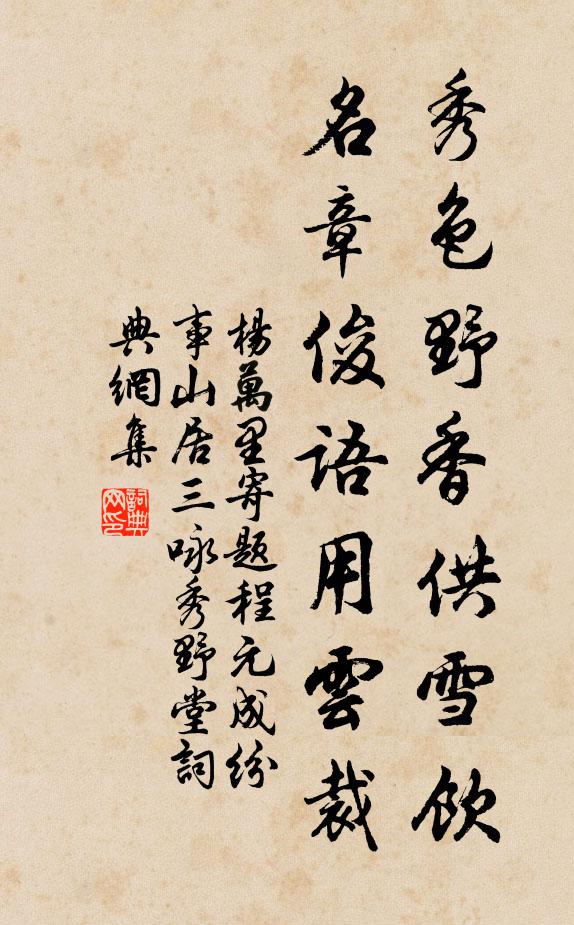 秀色野香供雪飲
名章俊語用雲裁
楊萬里寄題程元成紛
事山居三咏秀野堂詞
典網集
詞典网印